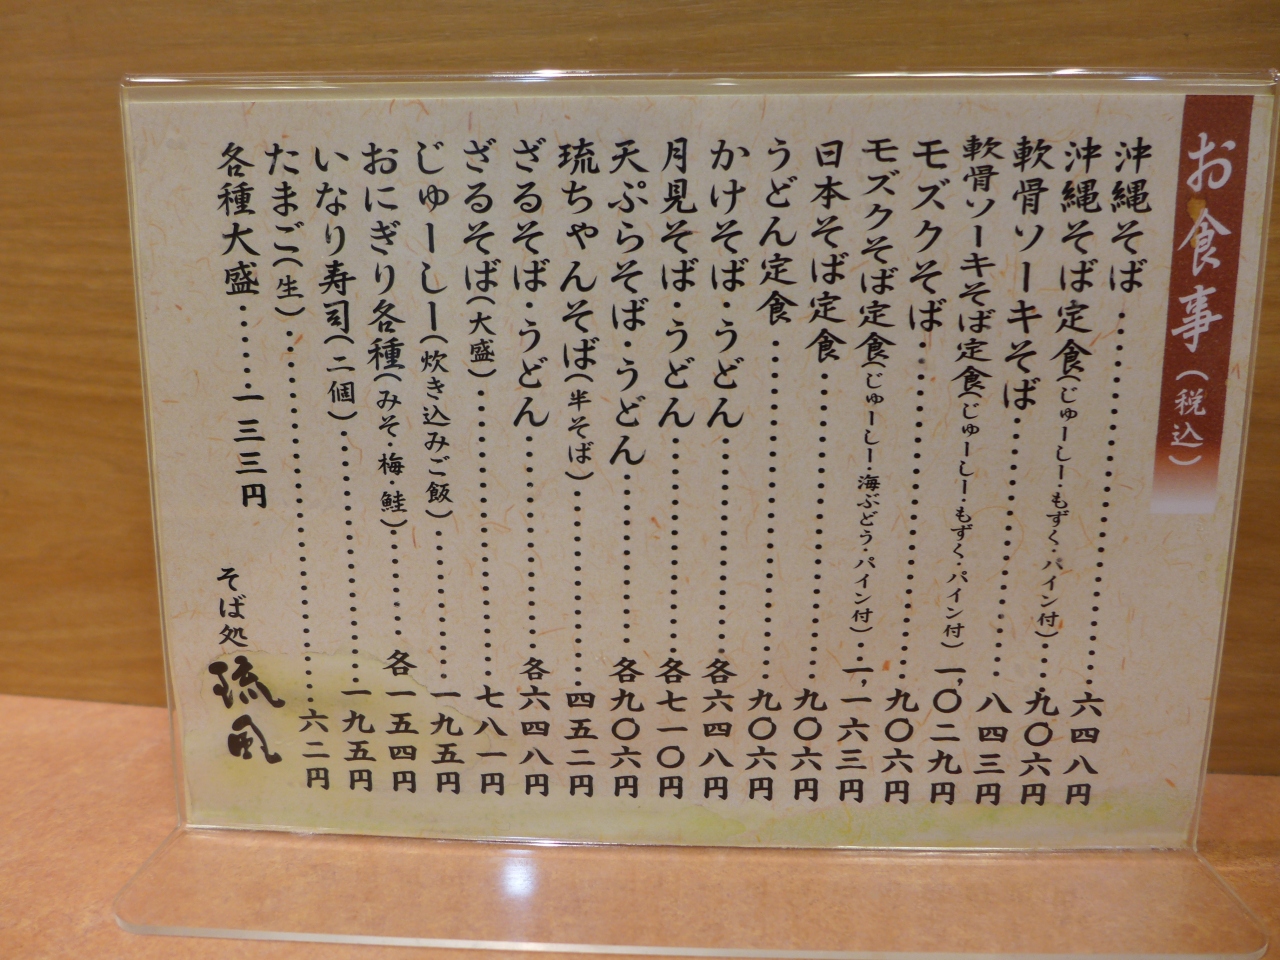 お食事(税込)
沖縄そば……六四八円
沖縄そば定食(じゅーしー・もずく・パイン付)…九〇六円
軟骨ソーキそば……八四三円
軟骨ソーキそば定食(じゅーしー・もずく・パイン付)一、〇二九円
モズクそば……九〇六円
モズクそば定食(じゅーしー・海ぶどう・パイン付)…一、一六三円
日本そば定食……九〇六円
うどん定食……九〇六円
かけそば・うどん……各六四八円
月見そば・うどん……各七一〇円
天ぷらそば・うどん……各九〇六円
琉ちゃんそば(半そば)……四五二円
ざるそば・うどん……各六四八円
ざるそば(大盛)……七八一円
じゅーしー(炊き込みご飯)……一九五円
おにぎり各種(みそ・梅・鮭)……各一五四円
いなり寿司(二個)……一九五円
たまご(生)……六二円
各種大盛……一三三円
そば処
琉風